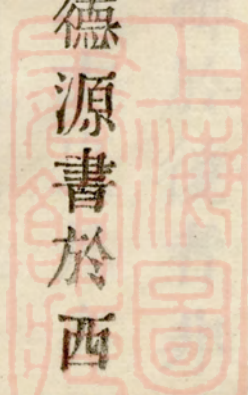 德源書於西
上海圖
書館藏